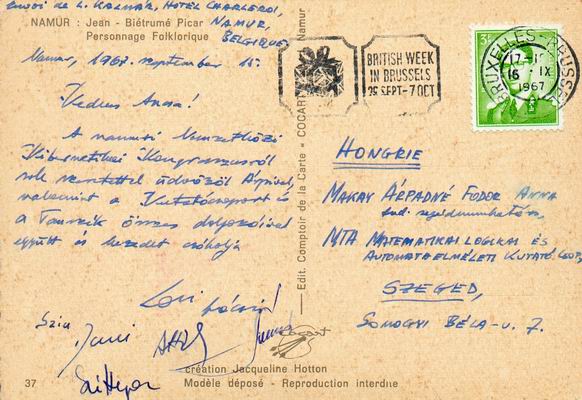 Envoi de L. KALMÁR, HOTEL CHARLEROI,
NAMUR,
BELGIQUE
NAMUR : Jean - Biétrumé Picar
Personnage Folklorique
Namur, 1967. szeptember 15.
Kedves Anna!
A namuri Nemzetközi
Kibernetikai Kongresszusról
sok szeretettel üdvözöl Árpáddal,
valamint a Kutatócsoport és
a Tanszék összes dolgozóival
együtt és kezedet csókolja
Laci bácsi
Szia
Jani
création Jacqueline Hotton
37 Modèle déposé - Reproduction interdite
Edit. Comptoir de la Carte « COCART Namur
cocart
BRITISH WEEK
IN BRUSSELS
29 SEPT-7 OCT
BRUXELLES-BRUSSEL
16 IX
1967
3F
HONGRIE
MAKAY ÁRPÁDNÉ FODOR ANNA
tud. segédmunkatárs,
MTA MATEMATIKAI LOGIKAI ÉS
AUTOMATAELMÉLETI KUTATÓ CSOP.,
SZEGED,
SOMOGYI BÉLA-U. 7.